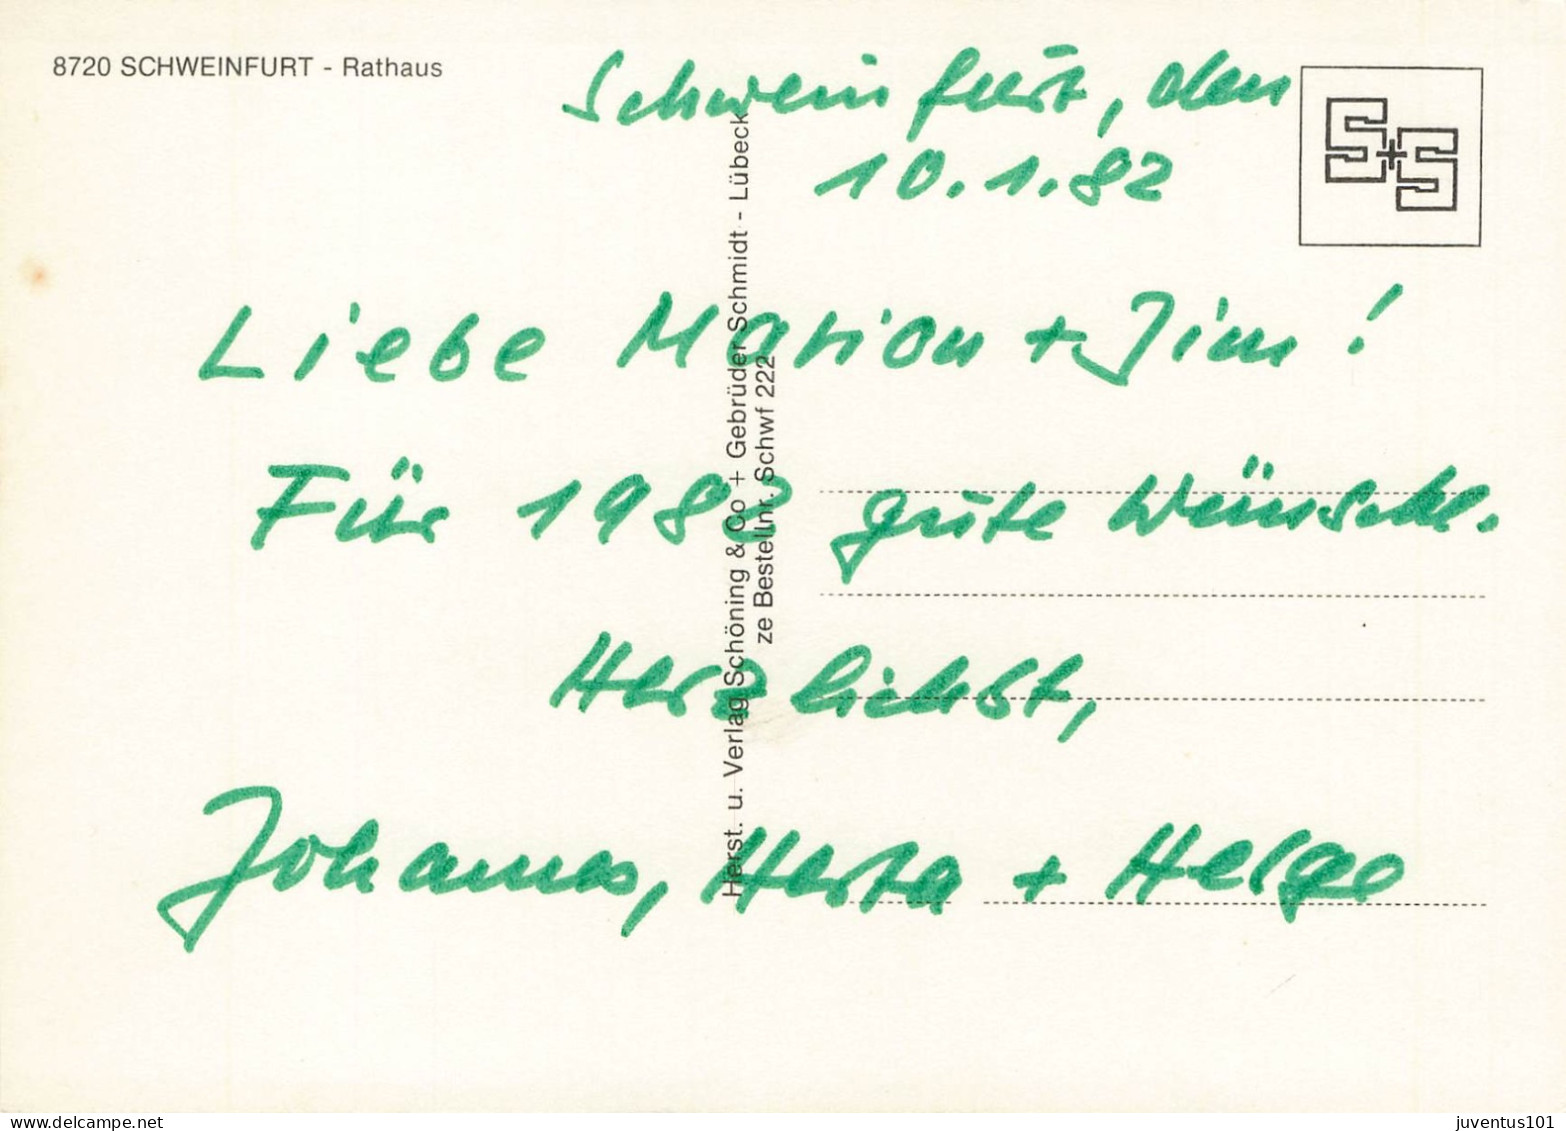 8720 SCHWEINFURT - Rathaus
Schweinfurt, den
10.1.82
S+S
Liebe Marion + Jim!
Für 1982 gute Wünsche.
Herzlichst,
Johannes, Herta + Helge
Herst. u. Verlag Schöning & Co + Gebrüder Schmidt - Lübeck
ze Bestellnr. Schwf 222
www.delcampe.net
juventus101